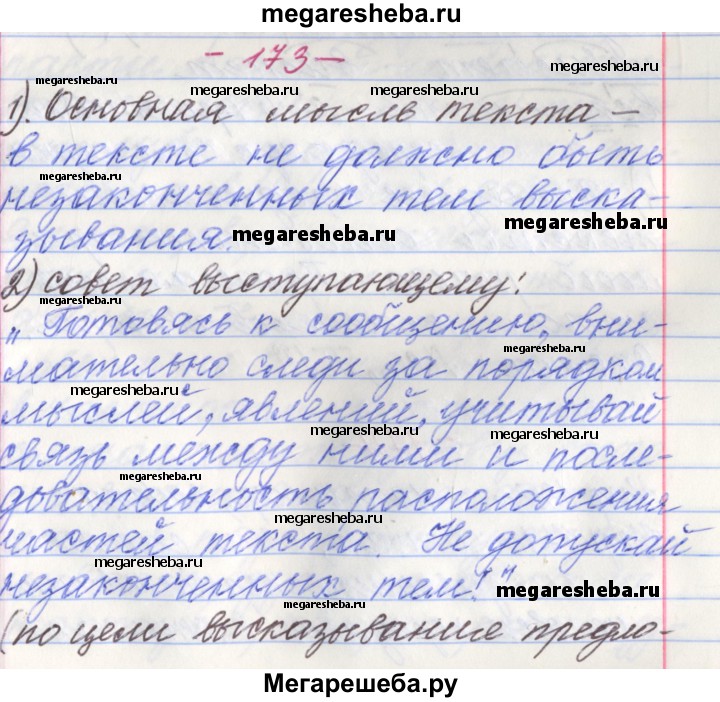 megaresheba.ru
- 173 -
megaresheba.ru megaresheba.ru megaresheba.ru
1). Основная мысль текста –
megaresheba.ru
в тексте не должно быть
megaresheba.ru
незаконченных тем выска-
megaresheba.ru
зывания. megaresheba.ru
2) совет выступающему:
megaresheba.ru
„Готовясь к сообщению, вни-
megaresheba.ru
мательно следи за порядком
megaresheba.ru
мыслей, явлений, учитывай
megaresheba.ru megaresheba.ru
связь между ними и после-
megaresheba.ru
довательность расположения
megaresheba.ru
частей текста. Не допускай
megaresheba.ru
незаконченных тем!" megaresheba.ru
megaresheba.ru
(по цели высказывание предло-
Мегарешеба.ру